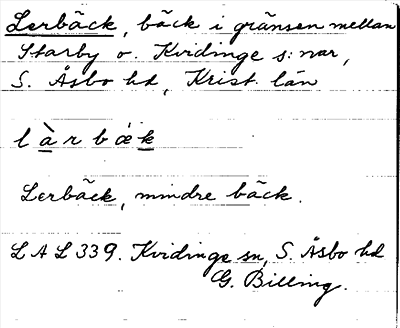 Lerbäck, bäck i gränsen mellan
Starby o. Kvidinge s:nar,
S. Åsbo hd, Krist. län
l à r b ǽ k
Lerbäck, mindre bäck.
LAL 339. Kvidinge sn, S. Åsbo hd
G. Billing.